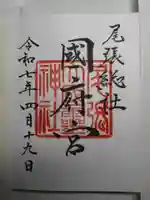 尾張総社
國府宮
令和七年四月十九日